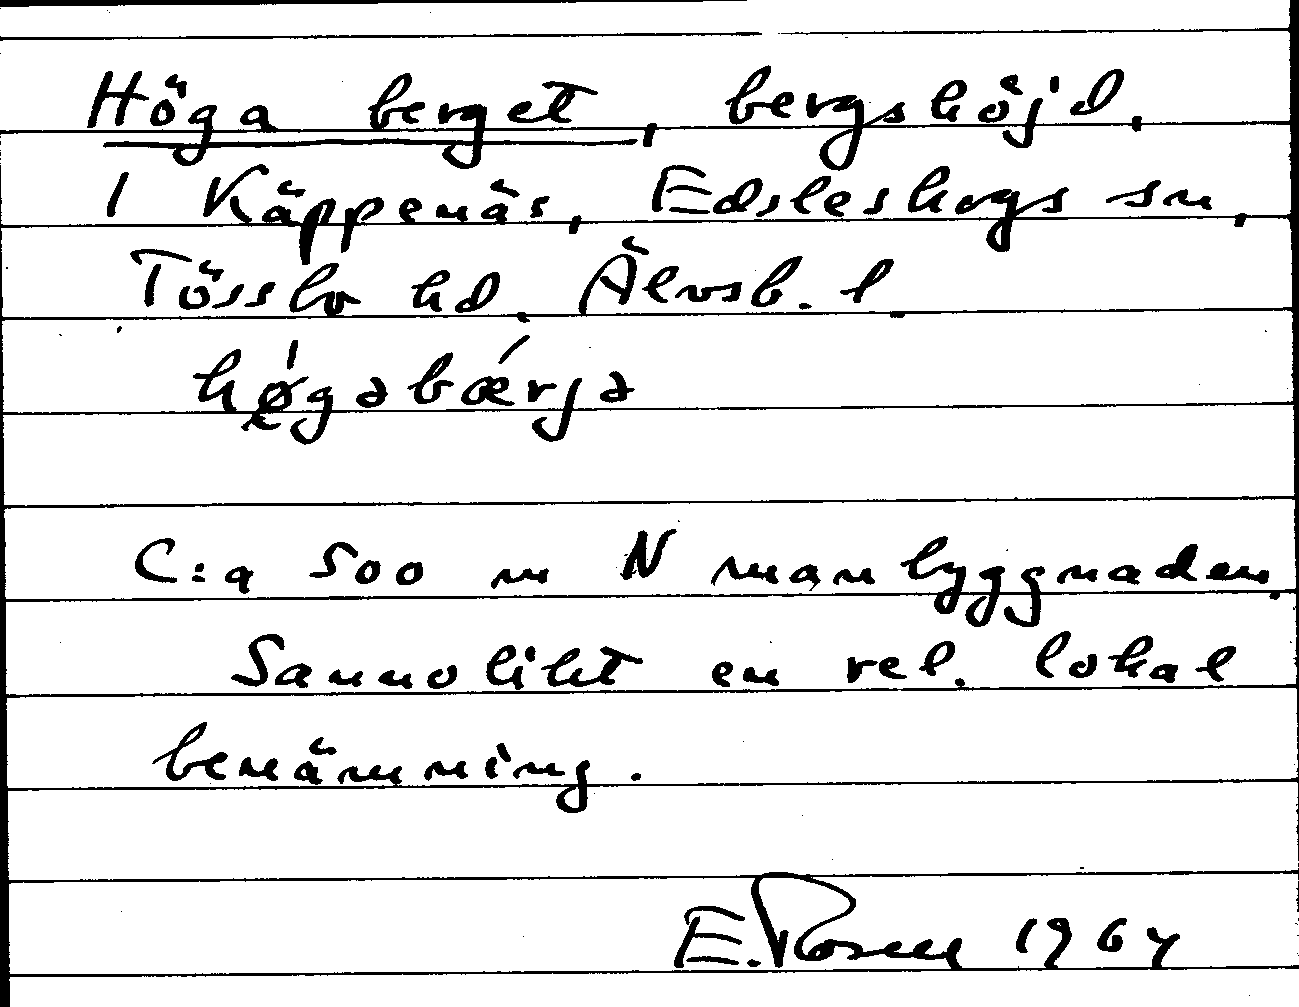 Höga berget, bergshöjd,
I Käppenäs, Edsleskogs sn,
Tössbo hd. Älvsb. l.
hǿgabǽrja
C:a 500 m N manbyggnaden.
Sannolikt en rel. lokal
benämning.
E. Rosell 1964